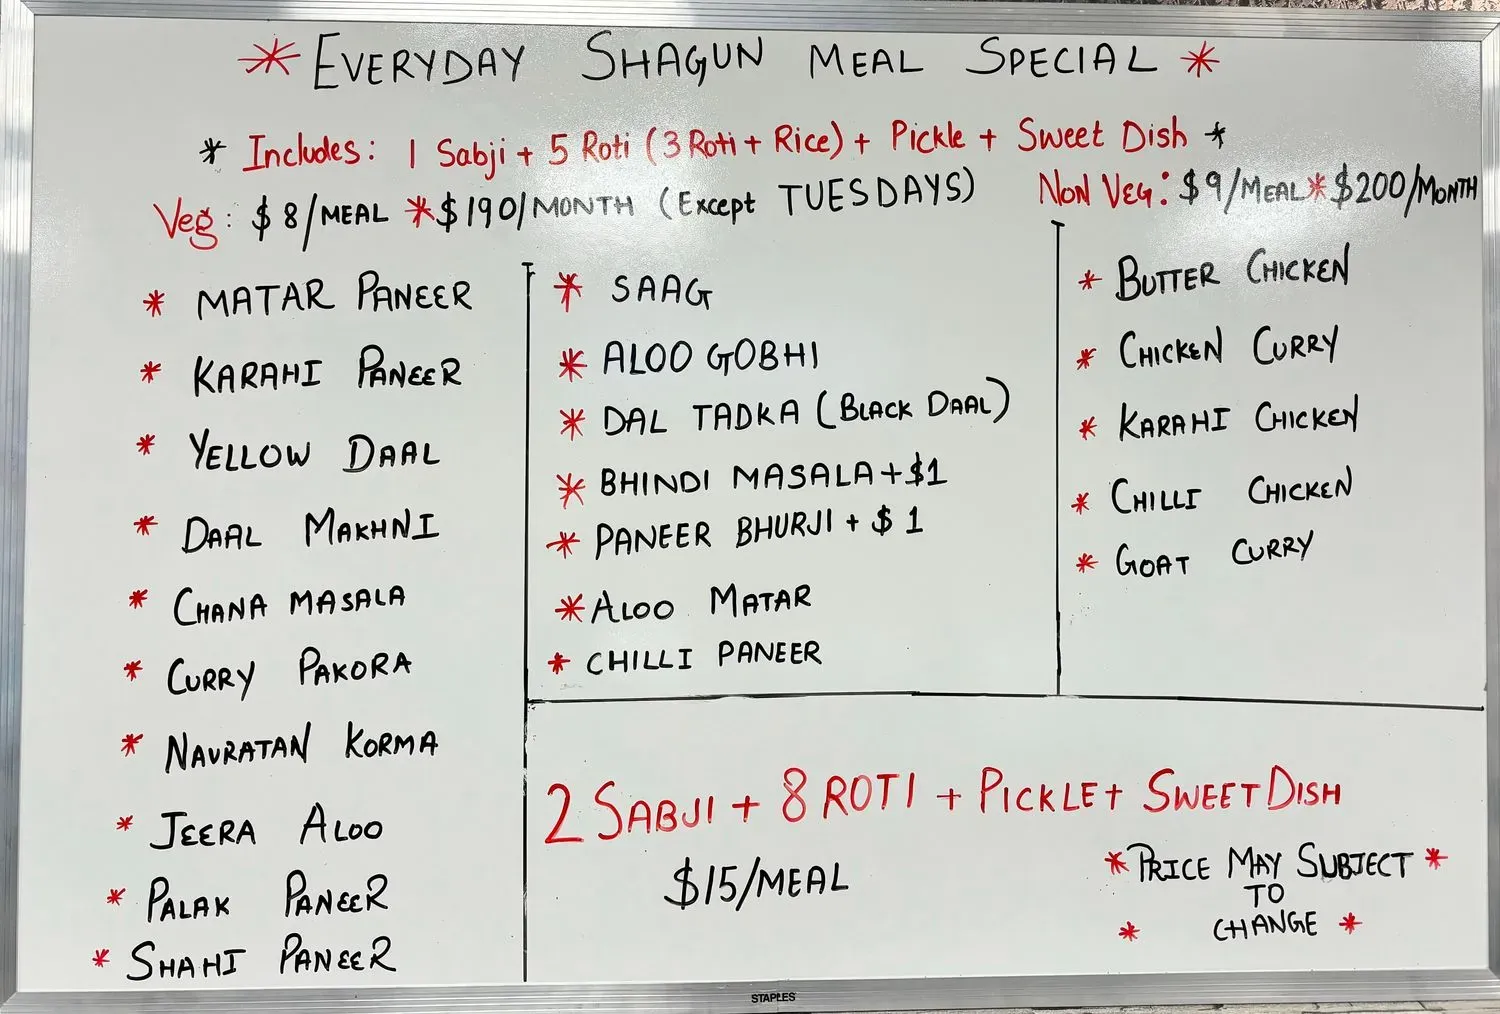 * EVERYDAY SHAGUN MEAL SPECIAL *
* Includes: 1 Sabji + 5 Roti (3 Roti + Rice) + Pickle + Sweet Dish *
Veg: $8/MEAL * $190/MONTH (Except TUESDAYS)
* MATAR PANEER
* KARAHI PANEER
* YELLOW DAAL
* DAAL MAKHNI
* CHANA MASALA
* CURRY PAKORA
* NAVRATAN KORMA
* JEERA ALOO
* PALAK PANEER
* SHAHI PANEER
* SAAG
* ALOO GOBHI
* DAL TADKA (BLACK DAAL)
* BHINDI MASALA + $1
* PANEER BHURJI + $1
* ALOO MATAR
* CHILLI PANEER
NON VEG: $9/MEAL * $200/MONTH
* BUTTER CHICKEN
* CHICKEN CURRY
* KARAHI CHICKEN
* CHILLI CHICKEN
* GOAT CURRY
2 SABJI + 8 ROTI + PICKLE + SWEET DISH
$15/MEAL
* PRICE MAY SUBJECT *
TO
* CHANGE *
STAPLES